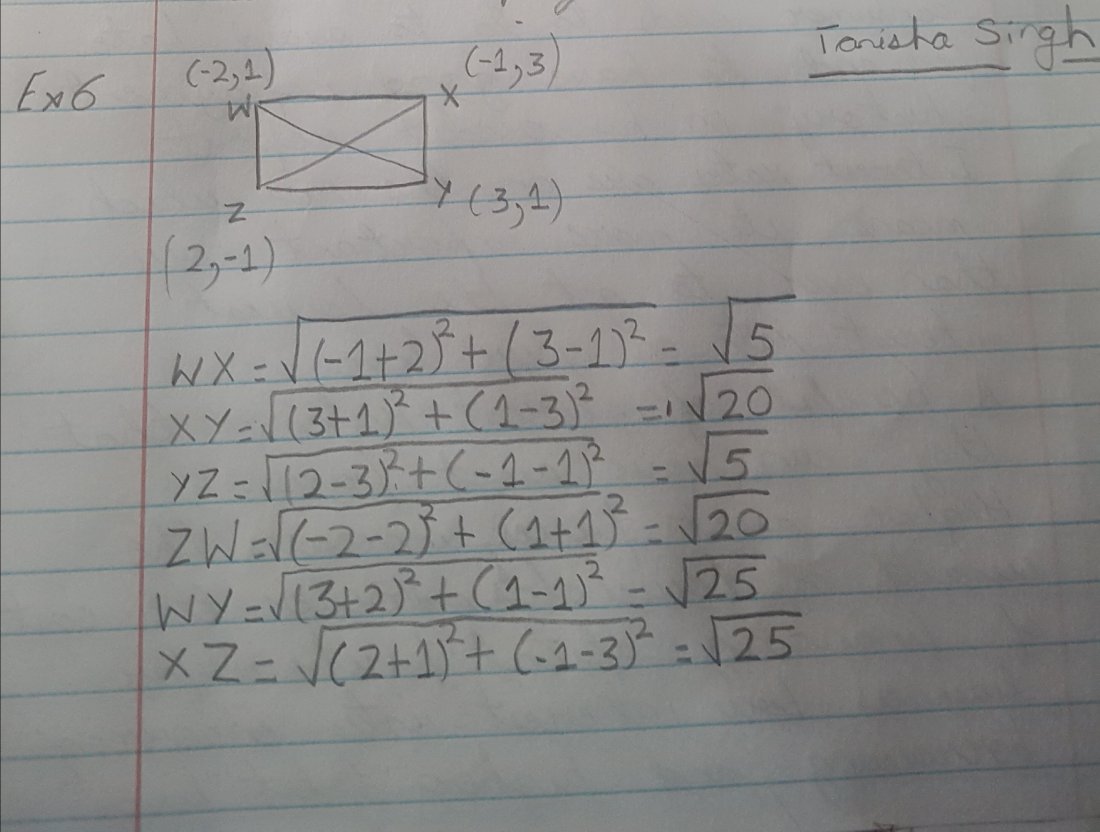 Tanisha Singh
Ex 6
(-2,1) (-1,3)
W X
Z Y (3,1)
(2,-1)
WX = √(-1+2)² + (3-1)² = √5
XY = √(3+1)² + (1-3)² = √20
YZ = √(2-3)² + (-1-1)² = √5
ZW = √(-2-2)² + (1+1)² = √20
WY = √(3+2)² + (1-1)² = √25
XZ = √(2+1)² + (-1-3)² = √25